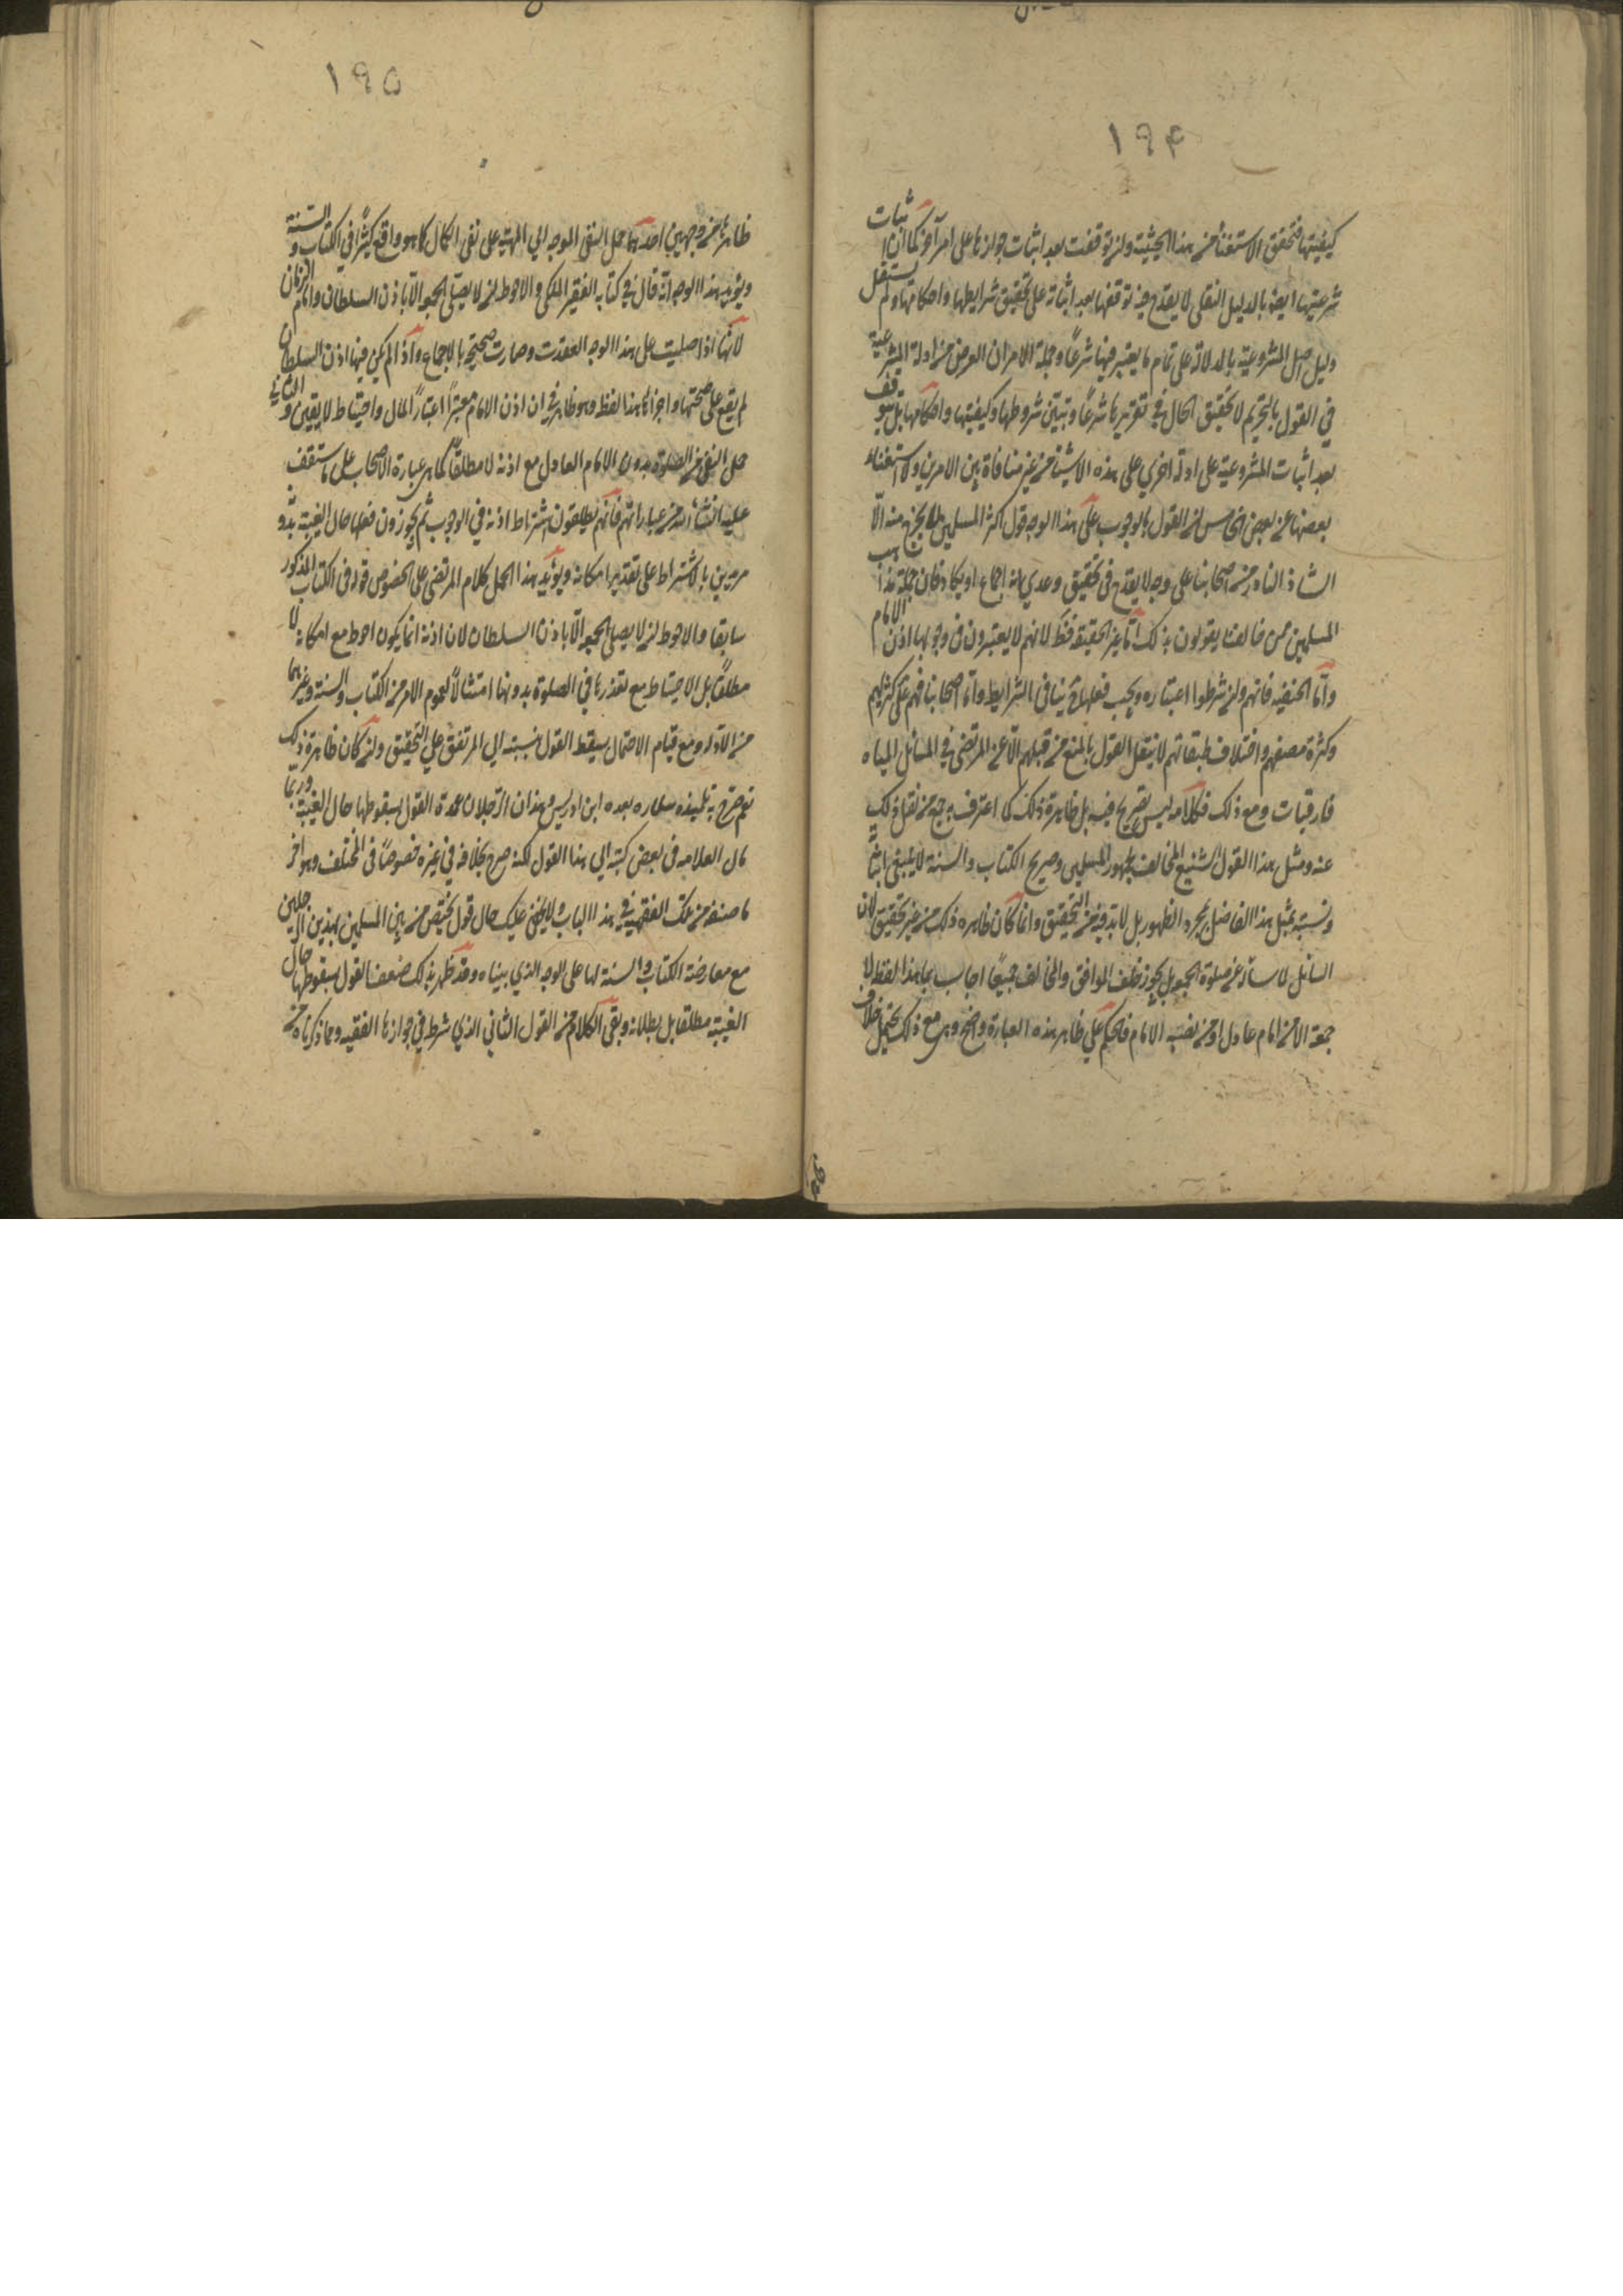 ١٩۴
كيفيتها فتحقق الاستغناء من هذا الحيثية ولن توقفت بعد اثبات جوازها على امر آخر كما ان اثبات
شرعيتها ايضا بالدليل النقلى لا يقدح فيه توقفها بعد اثباته على تحقيق شرايطها واحكامها ولم يستقل
دليل اصل المشروعية بالدلالة على تمام ما يعتبر فيها شرعًا وجملة الامر ان الغرض من ادلة الشرعية
في القول بالتحريم لا تحقيق الحال في تقريرها شرعًا وتبيّن شروطها وكيفيتها واحكامها بل يتوقف
بعد اثبات المشروعية على ادلة اخرى على هذه الاشياء من غير منافاة بين الامرين ولا استغناء
بعضها عن بعض الخامس ان القول بالوجوب على هذا الوجه قول اكثر المسلمين لم يخرج منه الّا
الشاذ النادر من اصحابنا على وجه لا يقدح فى تحقيق وعدى انه اجماع او يكاد فان جملة مذاهب
المسلمين ممن خالفنا يقولون بذلك امّا غير الحنفية فظ لانهم لا يعتبرون فى وجوبها اذن الامام
وامّا الحنفيه فانهم ولن شرطوا اعتباره ويجب فعلها ينافى الشرايط وامّا اصحابنا فهم على كثرتهم
وكثرة مصنفهم واختلاف طبقاتهم لا ينقل القول بالمنع من قبلهم الّا عن المرتضى في المسائل الميا
فارقيات ومع ذلك فكلامه ليس بصريح فيه بل ظاهره ذلك كما اعترف به جمع من نقل ذلك
عنه ومثل هذا القول الشنيع المخالف لجمهور المسلمين وصريح الكتاب والسنة لا ينبغى اثباته
ونسبته بمثل هذا الفاضل بمجرد الظهور بل لا بد فيه من التحقيق وانما كان ظاهره ذلك من غير تحقيق لان
السائل لا سأله عن صلوة الجمعة هل يجوز خلف الموافق والمخالف جميعًا اجاب بما هذا لفظه لا
جمعة الا مع امام عادل او من نصبه الامام فالحكم على ظاهر هذه العبارة واضح وهى مع ذلك تحتمل خلاف
١٩۵
ظاهرها من وجهين احدهما حمل النفى الموجه الي المهيّة على نفى الكمال كما هو واقع كثيرًا في الكتاب والسنة
ويؤيد هذا الوجه انّه قال في كتابه الفقه الملكى والاحوط ان لا يصلّى الجمعة الّا باذن السلطان وامام الزمان
لانّها اذا صليت على هذا الوجه انعقدت وصارت صحيحة بالاجماع واذا لم يكن فيها اذن السلطان
لم يقع على صحتها واجزائها هذا لفظه وهو ظاهر في ان اذن الامام معتبرًا اعتبارًا لكمال واحتياط لا يقين والثانى
حمل النفى من الصلوة بدون الامام العادل مع اذنه لا مطلقًا كما هى عبارة الاصحاب على ما ستقف
عليه انشاء الله من عباراتهم فانهم يطلقون اشتراط اذنه في الوجوب ثم يجوزون فعلها حال الغيبة بدو
مريدين بالاشتراط على تقدير امكانه ويؤيد هذا الحمل كلام المرتضى على الخصوص قوله فى الكتاب المذكور
سابقا والاحوط ان لا يصلى الجمعة الّا باذن السلطان لان اذنه انما يكون احوط مع امكانه لا
مطلقًا بل الاحتياط مع تعذرها في الصلوة بدونها امتثالًا لعموم الامر من الكتاب والسنة وغيرهما
من الادله ومع قيام الاحتمال يسقط القول بنسبته الي المرتضى على التحقيق ولن كان ظاهره ذلك
نعم صرّح به تلميذه سلار وبعده ابن ادريس وهذان الرجلان عمدة القول بسقوطها حال الغيبة وربما
مال العلامه فى بعض كتبه الي هذا القول لكنه صرح بخلافه في غيره خصوصًا فى المختلف وهو آخر
ما صنفه من كتب الفقهية في هذا الباب ولا يخفى عليك حال قول يختص من بين المسلمين بهذين الرجلين
مع معارضة الكتاب والسنة لها على الوجه الذي بيناه وقد ظهر بذلك ضعف القول بسقوطها حال
الغيبة مطلقا بل بطلانه وبقى الكلام من القول الثاني الذي شرط في جوازها الفقيه ومما ذكرناه من